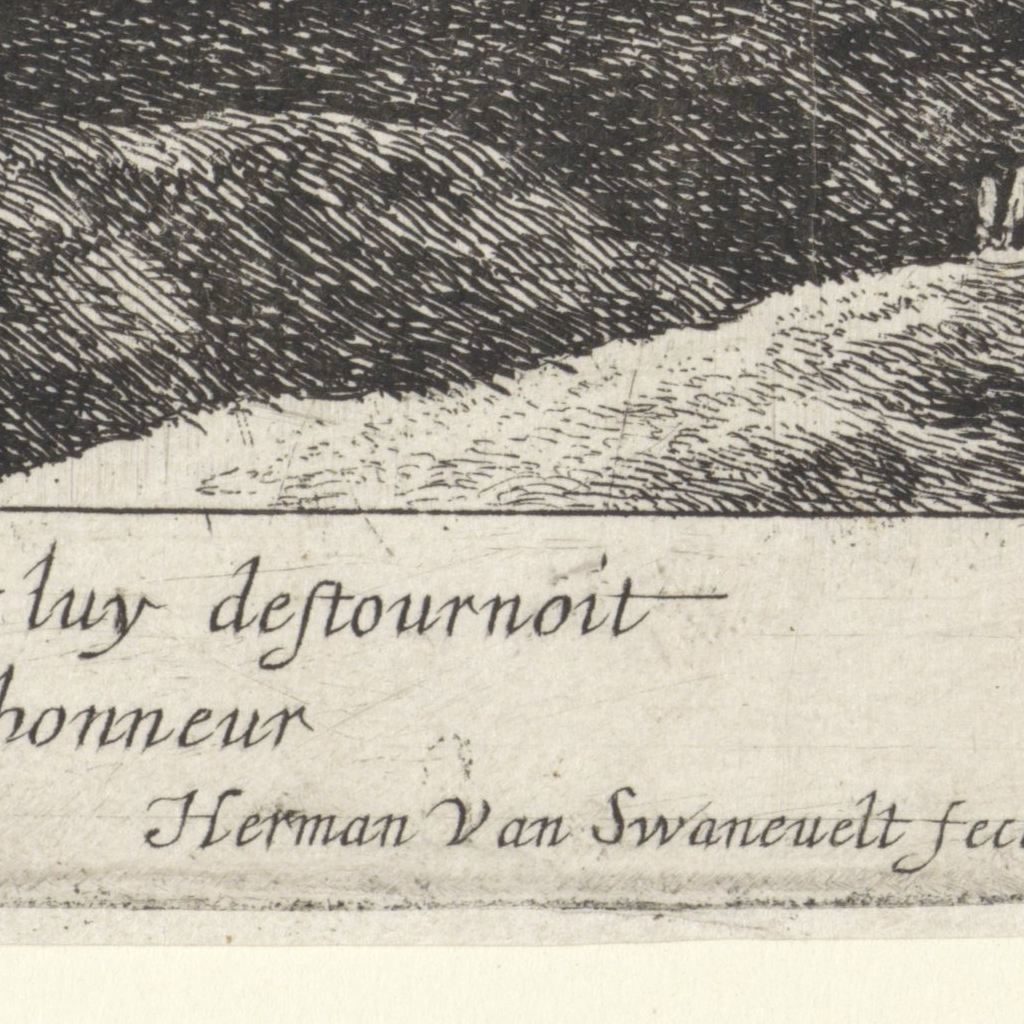 luy destournoit
honneur
Herman Van Swaneuelt fec